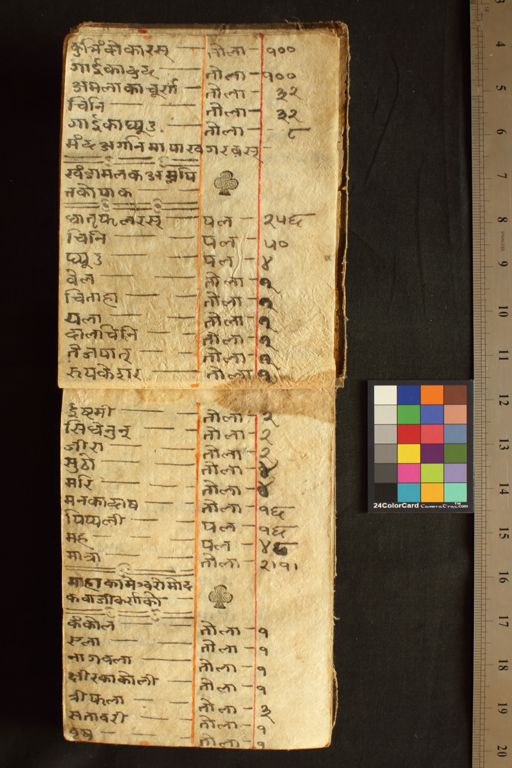 कुत्रिंकोकारस् तोला १००
गाईकादुद् तोला १००
अमलाकाचूर्ण तोला ३२
चिनि तोला ३२
गाईकाघ्यूउ तोला ८
मंद अगनिमापारवगरवस्
खंडामलकअम्लपि
तकोपाक
धातृफलरस् पल २५६
चिनि पल ५०
घ्यूउ पल ४
वेल तोला १
चिताहा तोला १
यला तोला १
दालचिनि तोला १
तेजपात् तोला १
रुपकेशर तोला १
ईष्मी तोला २
सिधेनुन् तोला २
जीरा तोला २
सुठो तोला ४
मरि तोला ४
मनकादाष तोला १६
पिपली पल १६
मह पल ४८
मात्रा तोला २।१।
माहाकामेश्वरोमोद
कवाजीकर्णको
कंकोल तोला १
एला तोला १
नागवला तोला १
क्षीरकाकोली तोला १
त्रीफला तोला ३
सतावरी तोला १
तोला १
24ColorCard
3
4
5
6
7
8
9
10
11
12
13
14
15
16
17
18
19
20